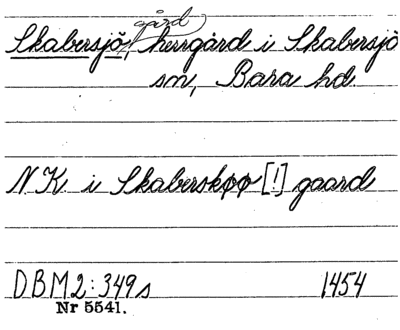 gård
Skabersjö, herrgård i Skabersjö
sn, Bara hd.
N.K. i Skaberskøø [!] gaard
DBM 2:349 s 1454
Nr 5541.